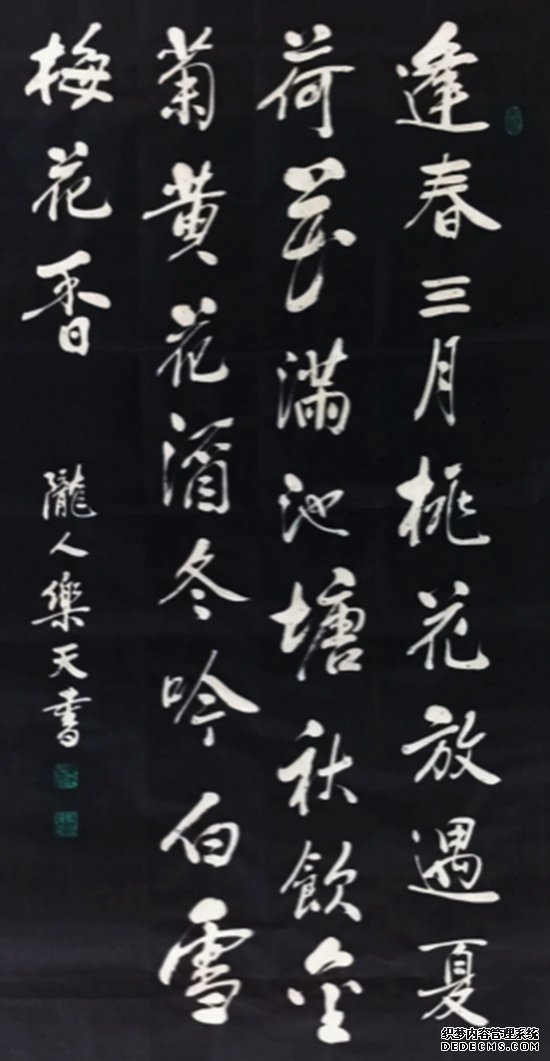 逢春三月桃花放遇夏
荷花滿池塘秋飲金
菊黄花酒冬吟白雪
梅花香
隴人樂天書
织梦内容管理系统
DEDECMS.COM